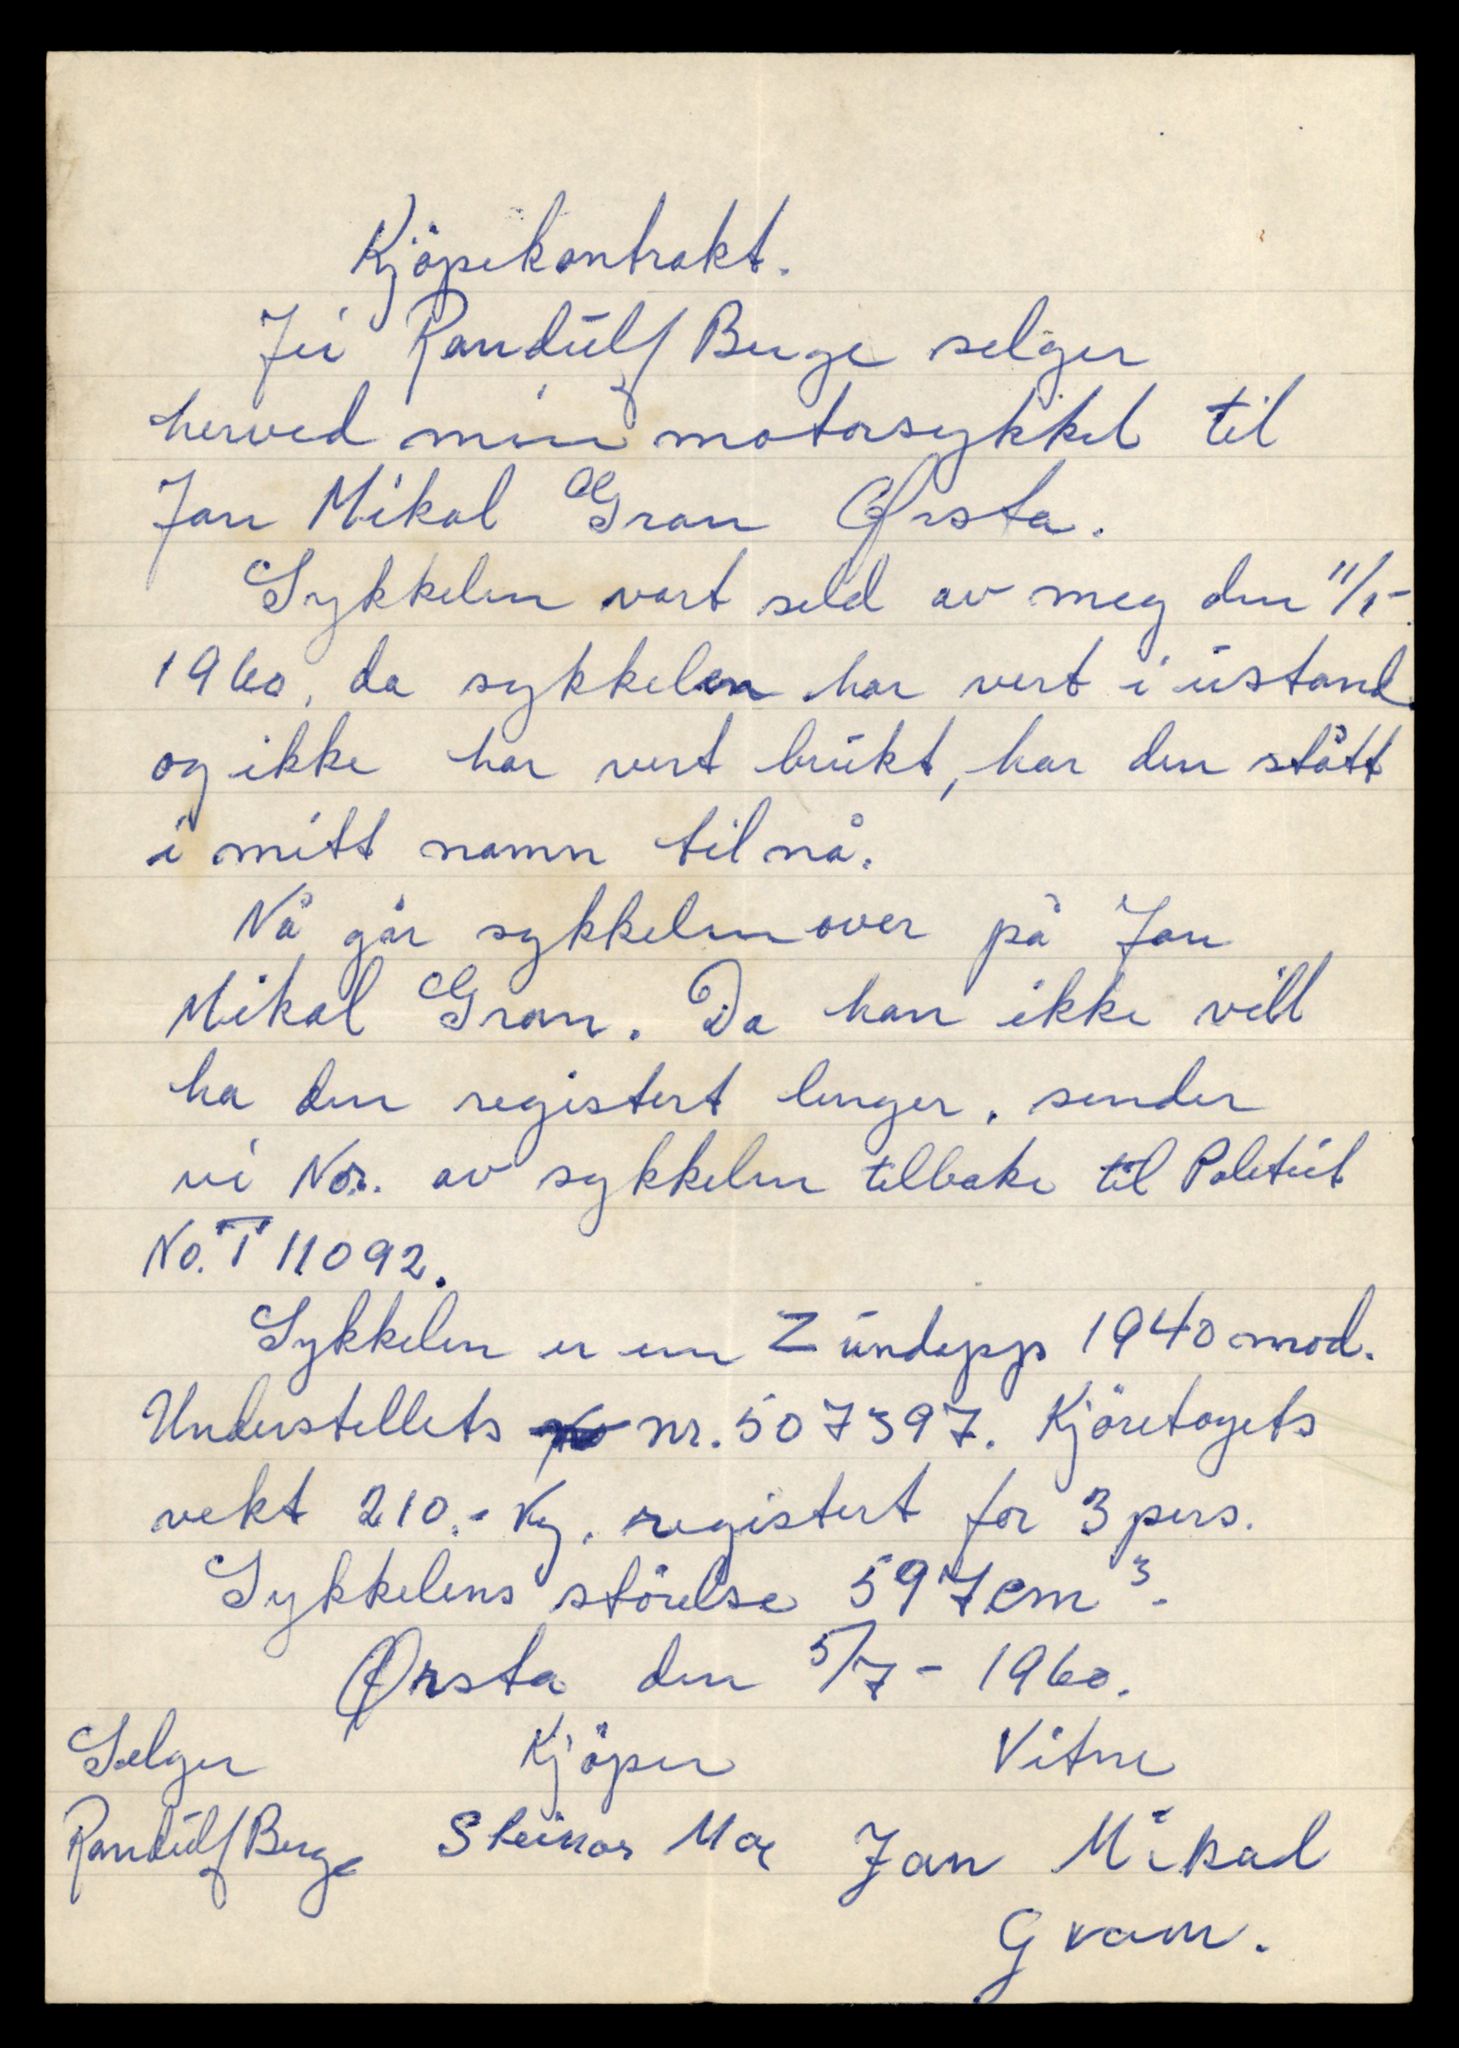 Kjöpekontrakt.
Jei Randulf Berge selger
herved min motorsykkel til
Jan Mikal Gran Ørsta.
Sykkelen vart seld av meg den 11/5-
1960, da sykkelen har vert i ustand
og ikke har vert brukt, har den stått
i mitt namn til nå.
Nå går sykkelen over på Jan
Mikal Gran. Da han ikke vill
ha den registert lenger. sender
vi Nor. av sykkelen tilbake til Politiet
No. T 11092.
Sykkelen er en Zündapp 1940 mod.
Understellets nr. 507397. Kjöretogets
vekt 210.- Kg. registert for 3 pers.
Sykkelens störelse 597 cm³.
Ørsta den 5/7 - 1960.
Selger Kjöper Vitne
Randulf Berge Steinar Moe Jan Mikal
Gram.